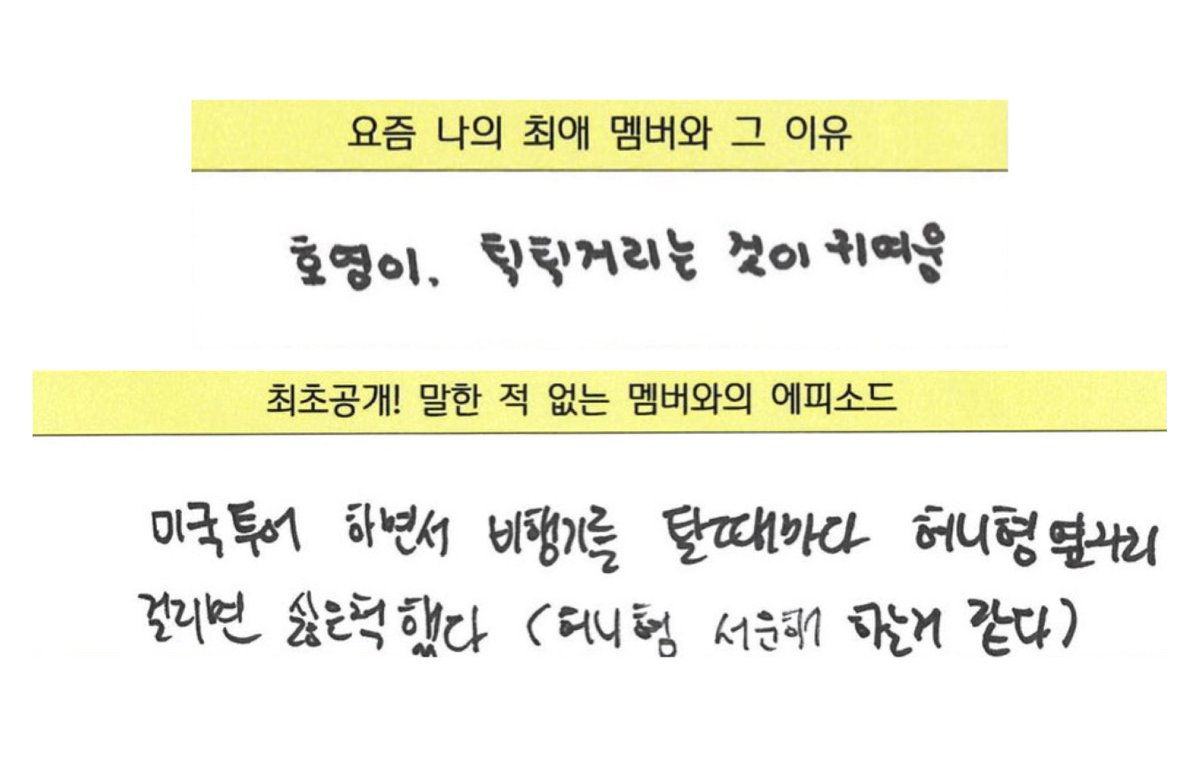 요즘 나의 최애 멤버와 그 이유
호영이. 틱틱거리는 것이 귀여웅
최초공개! 말한 적 없는 멤버와의 에피소드
미국투어 하면서 비행기를 탈때마다 허니형 옆자리
걸리면 싫은척 했다 (허니형 서운해 하는거 같다)